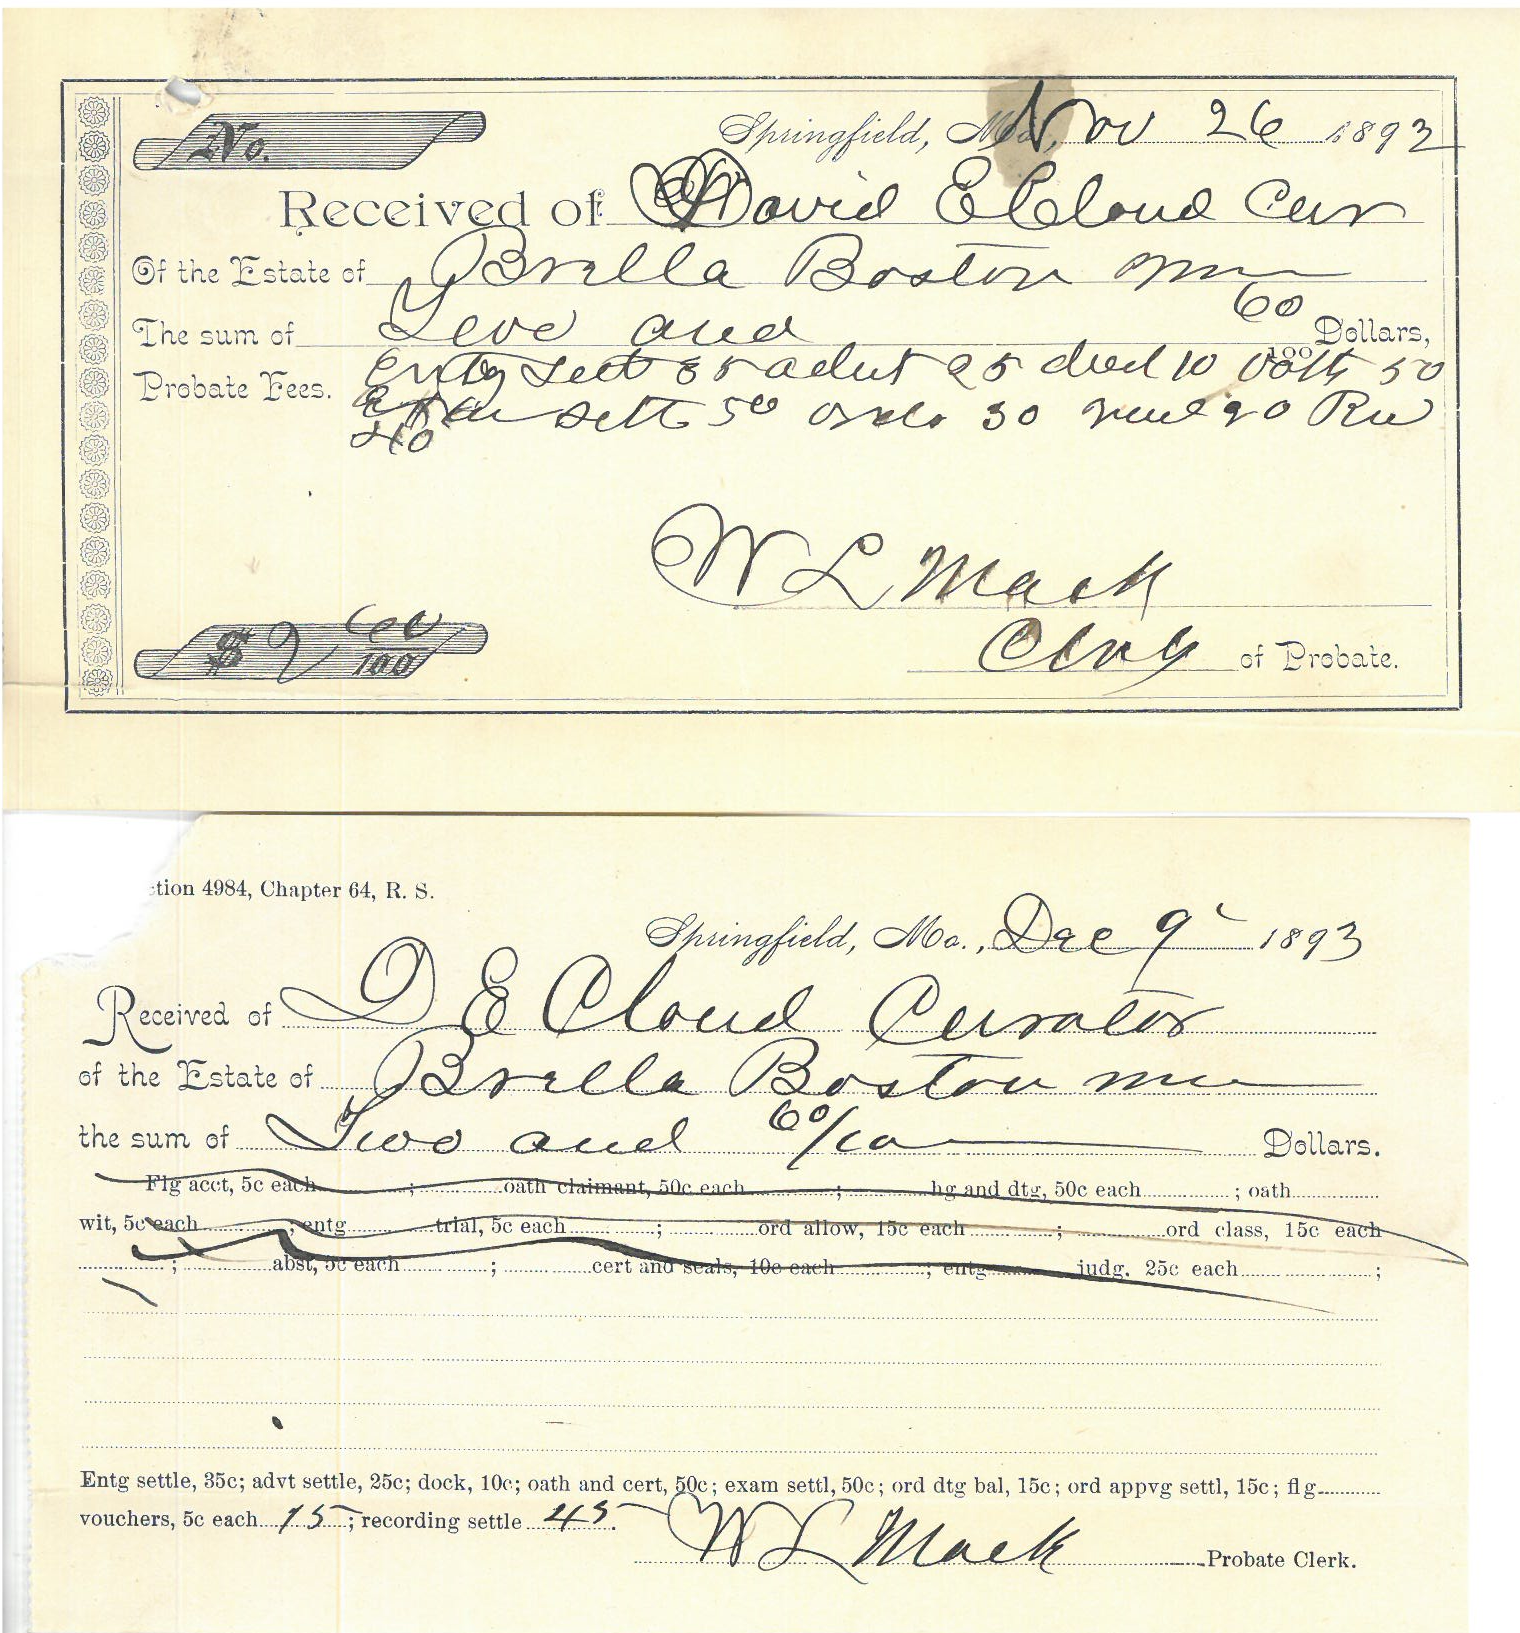 No.
Springfield, Mo., Nov 26 1892
Received of David E Cloud Cur
Of the Estate of Brella Boston
The sum of Two and 60/100 Dollars,
Probate Fees. Entg sett 35 advt 25 dock 10 Oath 50
Exam sett 50 Ords 30 20
40
W L Mack
Clerk of Probate.
$ 2 60/100
ction 4984, Chapter 64, R. S.
Springfield, Mo., Dec 9 1893
Received of D E Cloud Curator
of the Estate of Brella Boston
the sum of Two and 60/100 Dollars.
Flg acct, 5c each ; oath claimant, 50c each ; hg and dtg, 50c each ; oath
wit, 5c each ; entg trial, 5c each ; ord allow, 15c each ; ord class, 15c each
; abst, 5c each ; cert and seals, 10c each ; entg judg, 25c each ;
Entg settle, 35c; advt settle, 25c; dock, 10c; oath and cert, 50c; exam settl, 50c; ord dtg bal, 15c; ord appvg settl, 15c; flg
vouchers, 5c each 15 ; recording settle 45.
W L Mack Probate Clerk.